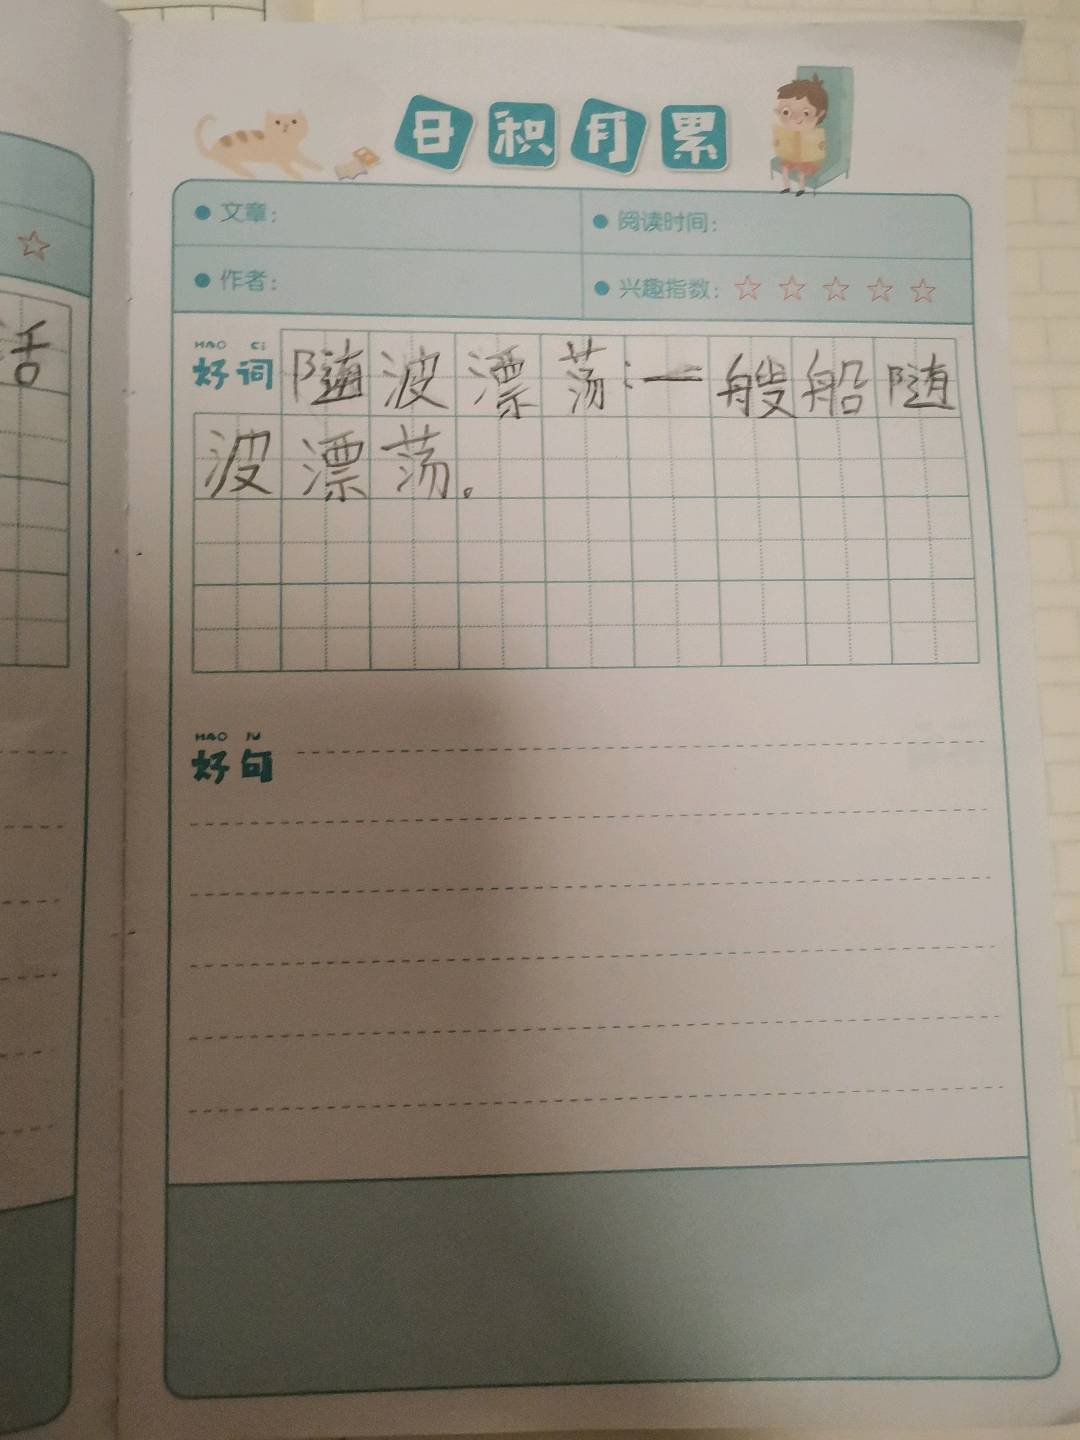 日积月累
文章：
阅读时间：
作者：
兴趣指数：
HAO CI
好词
随波漂荡：一艘船随
波漂荡。
HAO JU
好句
活